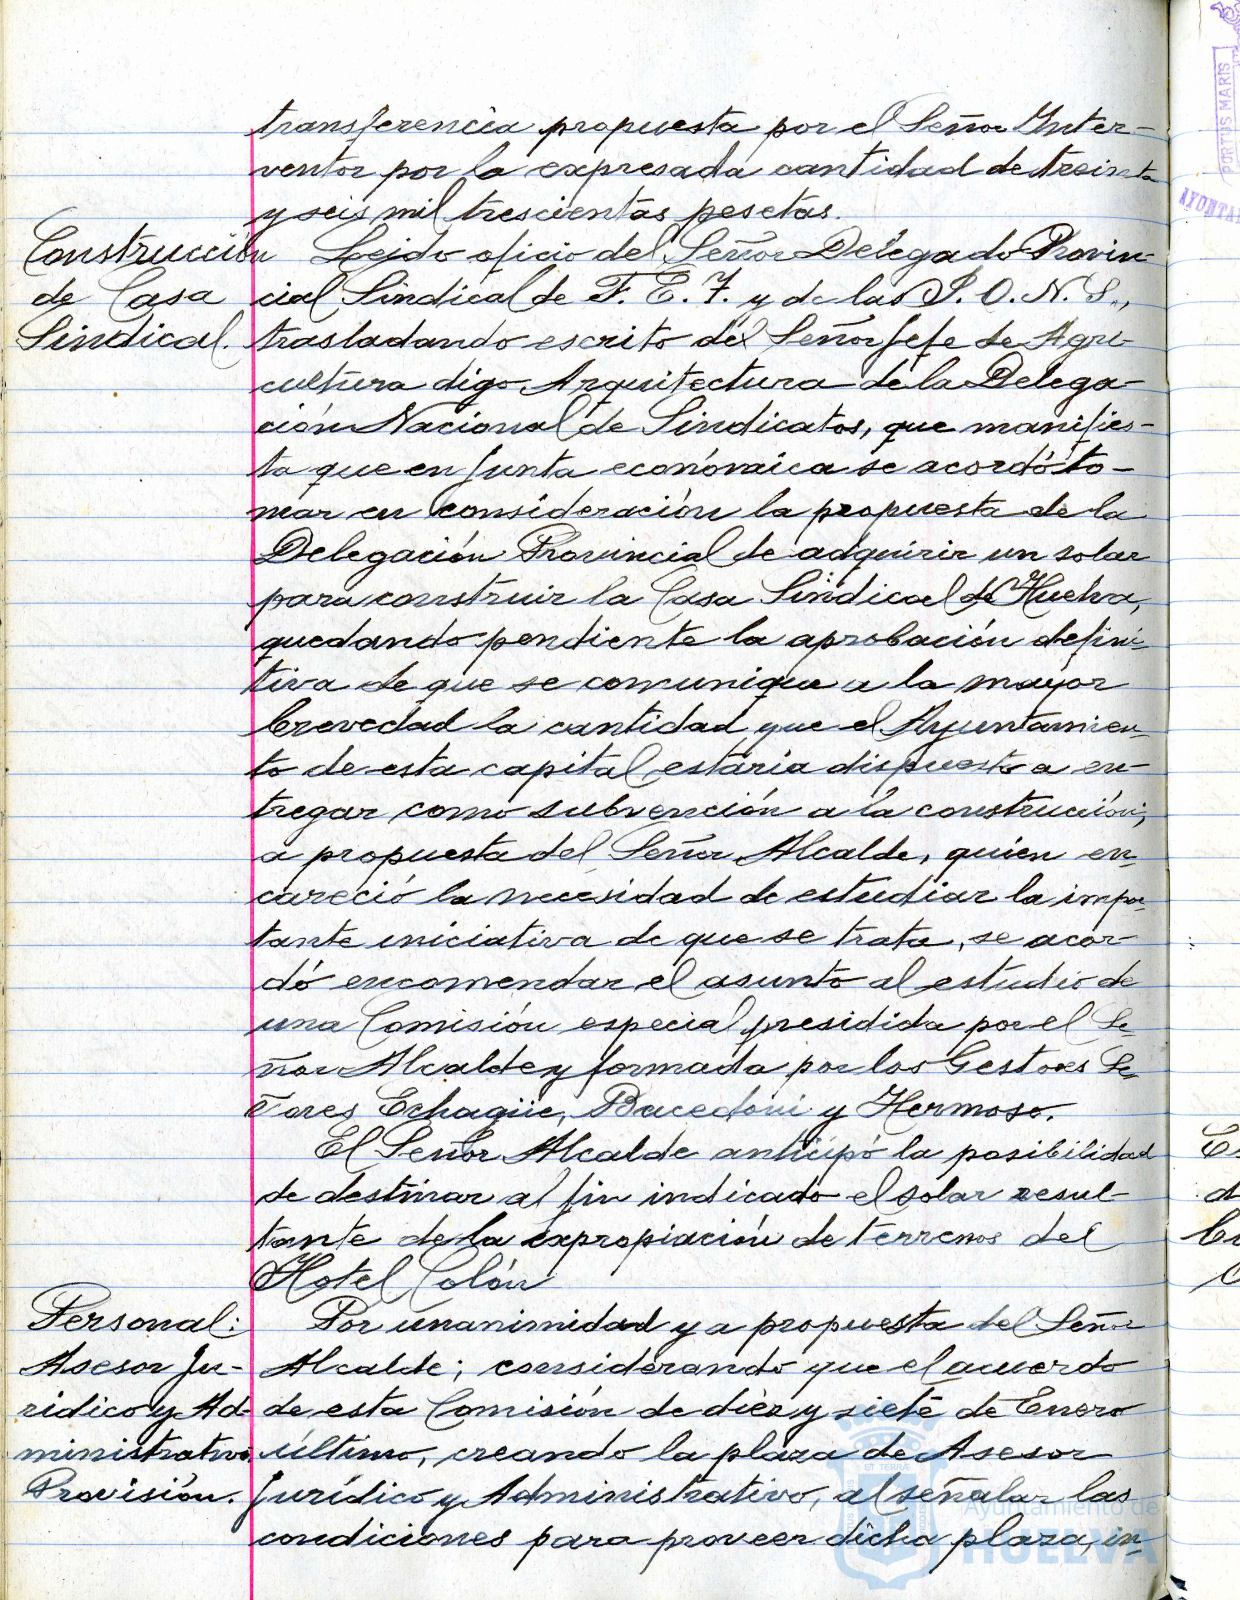 transferencia propuesta por el Señor Inter-
ventor por la expresada cantidad de treinta
y seis mil trescientas pesetas.
Construcción
de Casa
Sindical.
Leido oficio del Señor Delegado Provin-
cial Sindical de F. E. T. y de las J. O. N. S.,
trasladando escrito del Señor Jefe de Agri-
cultura digo Arquitectura de la Delega-
ción Nacional de Sindicatos, que manifies-
ta que en Junta económica se acordó to-
mar en consideración la propuesta de la
Delegación Provincial de adquirir un solar
para construir la Casa Sindical de Huelva,
quedando pendiente la aprobación defini-
tiva de que se comunique a la mayor
brevedad la cantidad que el Ayuntamien-
to de esta capital estaria dispuesto a en-
tregar como subvención a la construcción;
a propuesta del Señor Alcalde, quien en-
careció la necesidad de estudiar la impor-
tante iniciativa de que se trata, se acor-
dó encomendar el asunto al estudio de
una Comisión especial presidida por el Se-
ñor Alcalde y formada por los Gestores Se-
ñores Echagüe, Bacedoni y Hermoso.
El Señor Alcalde anticipó la posibilidad
de destinar al fin indicado el solar resul-
tante de la expropiación de terrenos del
Hotel Colón
Personal:
Asesor Ju-
ridico y Ad-
ministrativo.
Provisión.
Por unanimidad y a propuesta del Señor
Alcalde; considerando que el acuerdo
de esta Comisión de diez y siete de Enero
último, creando la plaza de Asesor
Jurídico y Administrativo, al señalar las
condiciones para proveer dicha plaza, in-
Ayuntamiento de
HUELVA
PORTUS MARIS